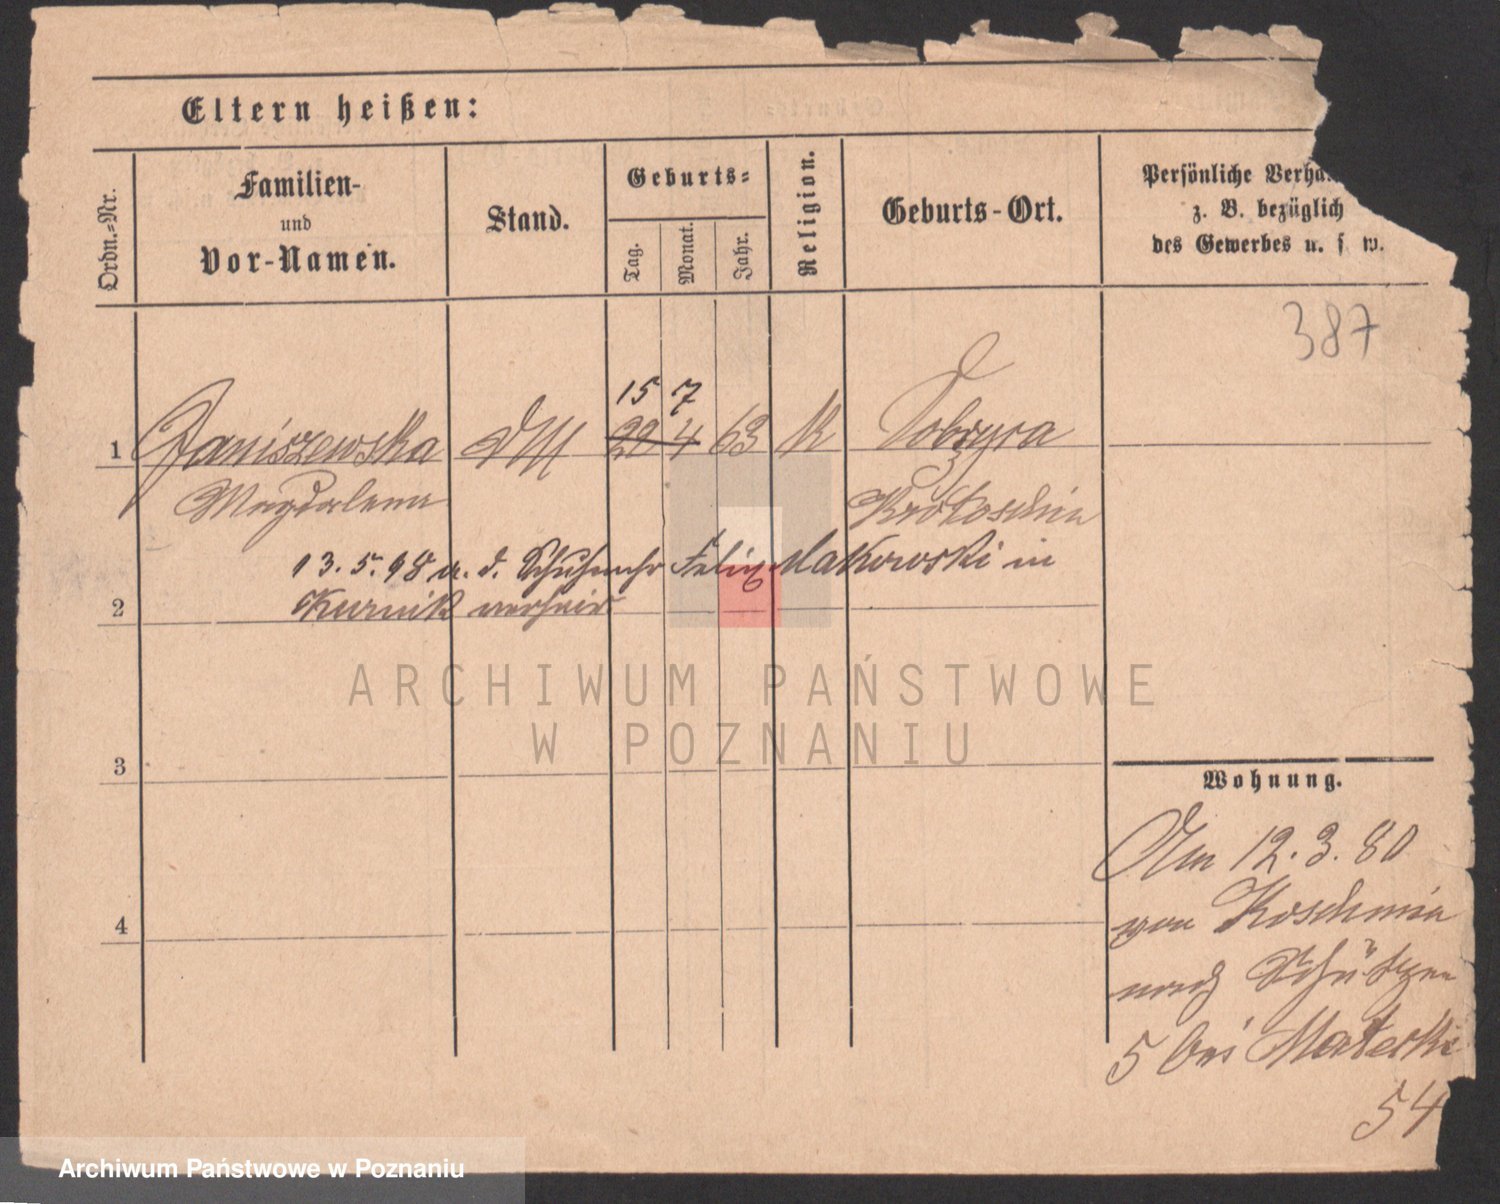 Eltern heißen:
Ordn.-Nr.
Familien-
und
Vor-Namen.
Stand.
Geburts-
Tag.
Monat.
Jahr.
Religion.
Geburts-Ort.
Persönliche Verha
z. B. bezüglich
des Gewerbes u. s w.
387
15 7
1 Janiszewska DM 22 4 63 K Dobrzyca
Magdalena Krotoschin
13.5.98 m. d. Schuhmchr Felix Makowski in
2 Kurnik verheir
3
4
Wohnung.
Am 12.3.80
von Koschmin
nach Schützen
5 bei Materski
54
ARCHIWUM PAŃSTWOWE
W POZNANIU
Archiwum Państwowe w Poznaniu